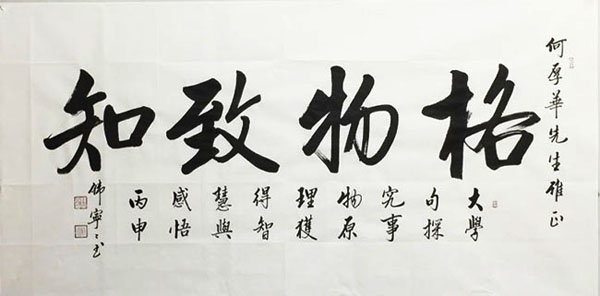 何厚華先生雅正
格物致知
大學
句探
究事
物原
理獲
得智
慧與
感悟
丙申
寧 书